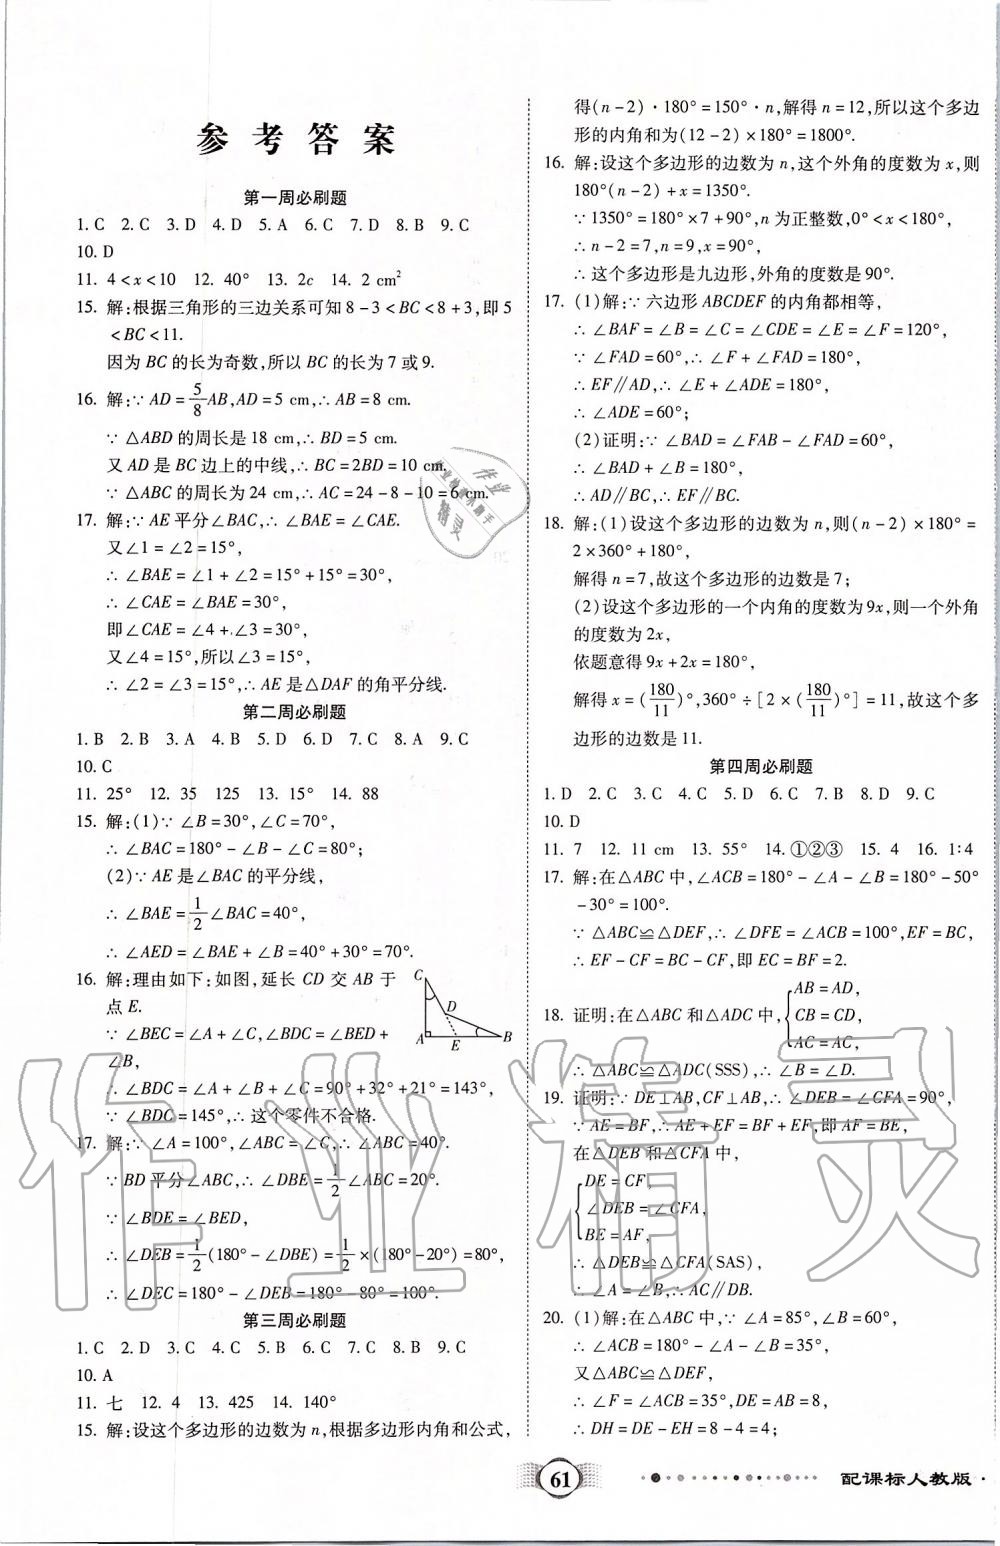 参考答案
第一周必刷题
1. C  2. C  3. D  4. D  5. A  6. C  7. D  8. B  9. C
10. D
11. 4<x<10  12. 40°  13. 2c  14. 2 cm²
15. 解:根据三角形的三边关系可知8-3<BC<8+3,即5
<BC<11.
因为BC的长为奇数,所以BC的长为7或9.
16. 解:∵AD=5/8AB,AD=5 cm,∴AB=8 cm.
∵△ABD的周长是18 cm,∴BD=5 cm.
又AD是BC边上的中线,∴BC=2BD=10 cm.
∵△ABC的周长为24 cm,∴AC=24-8-10=6 cm.
17. 解:∵AE平分∠BAC,∴∠BAE=∠CAE.
又∠1=∠2=15°,
∴∠BAE=∠1+∠2=15°+15°=30°,
∴∠CAE=∠BAE=30°,
即∠CAE=∠4+∠3=30°,
又∠4=15°,所以∠3=15°,
∴∠2=∠3=15°,∴AE是△DAF的角平分线.
第二周必刷题
1. B  2. B  3. A  4. B  5. D  6. D  7. C  8. A  9. C
10. C
11. 25°  12. 35  125  13. 15°  14. 88
15. 解:(1)∵∠B=30°,∠C=70°,
∴∠BAC=180°-∠B-∠C=80°;
(2)∵AE是∠BAC的平分线,
∴∠BAE=1/2∠BAC=40°,
∴∠AED=∠BAE+∠B=40°+30°=70°.
16. 解:理由如下:如图,延长CD交AB于
点E.
∵∠BEC=∠A+∠C,∠BDC=∠BED+
∠B,
∴∠BDC=∠A+∠B+∠C=90°+32°+21°=143°,
∵∠BDC=145°,∴这个零件不合格.
C
D
A
E
B
17. 解:∵∠A=100°,∠ABC=∠C,∴∠ABC=40°.
∵BD平分∠ABC,∴∠DBE=1/2∠ABC=20°.
∵∠BDE=∠BED,
∴∠DEB=1/2(180°-∠DBE)=1/2×(180°-20°)=80°,
∴∠DEC=180°-∠DEB=180°-80°=100°.
第三周必刷题
1. C  2. D  3. C  4. C  5. B  6. C  7. C  8. B  9. C
10. A
11. 七  12. 4  13. 425  14. 140°
15. 解:设这个多边形的边数为n,根据多边形内角和公式,
得(n-2)·180°=150°·n,解得n=12,所以这个多边
形的内角和为(12-2)×180°=1800°.
16. 解:设这个多边形的边数为n,这个外角的度数为x,则
180°(n-2)+x=1350°.
∵1350°=180°×7+90°,n为正整数,0°<x<180°,
∴n-2=7,n=9,x=90°,
∴这个多边形是九边形,外角的度数是90°.
17. (1)解:∵六边形ABCDEF的内角都相等,
∴∠BAF=∠B=∠C=∠CDE=∠E=∠F=120°,
∵∠FAD=60°,∴∠F+∠FAD=180°,
∴EF∥AD,∴∠E+∠ADE=180°,
∴∠ADE=60°;
(2)证明:∵∠BAD=∠FAB-∠FAD=60°,
∴∠BAD+∠B=180°,
∴AD∥BC,∴EF∥BC.
18. 解:(1)设这个多边形的边数为n,则(n-2)×180°=
2×360°+180°,
解得n=7,故这个多边形的边数是7;
(2)设这个多边形的一个内角的度数为9x,则一个外角
的度数为2x,
依题意得9x+2x=180°,
解得x=(180/11)°,360°÷[2×(180/11)°]=11,故这个多
边形的边数是11.
第四周必刷题
1. D  2. C  3. C  4. C  5. D  6. C  7. B  8. D  9. C
10. D
11. 7  12. 11 cm  13. 55°  14. ①②③  15. 4  16. 1:4
17. 解:在△ABC中,∠ACB=180°-∠A-∠B=180°-50°
-30°=100°.
∵△ABC≌△DEF,∴∠DFE=∠ACB=100°,EF=BC,
∴EF-CF=BC-CF,即EC=BF=2.
18. 证明:在△ABC和△ADC中,{AB=AD,
CB=CD,
AC=AC,
∴△ABC≌△ADC(SSS),∴∠B=∠D.
19. 证明:∵DE⊥AB,CF⊥AB,∴∠DEB=∠CFA=90°,
∵AE=BF,∴AE+EF=BF+EF,即AF=BE,
在△DEB和△CFA中,
{DE=CF,
∠DEB=∠CFA,
BE=AF,
∴△DEB≌△CFA(SAS),
∴∠A=∠B,∴AC∥DB.
20. (1)解:在△ABC中,∵∠A=85°,∠B=60°,
∴∠ACB=180°-∠A-∠B=35°,
又△ABC≌△DEF,
∴∠F=∠ACB=35°,DE=AB=8,
∴DH=DE-EH=8-4=4;
61
配课标人教版·
作业精灵
作业
精灵